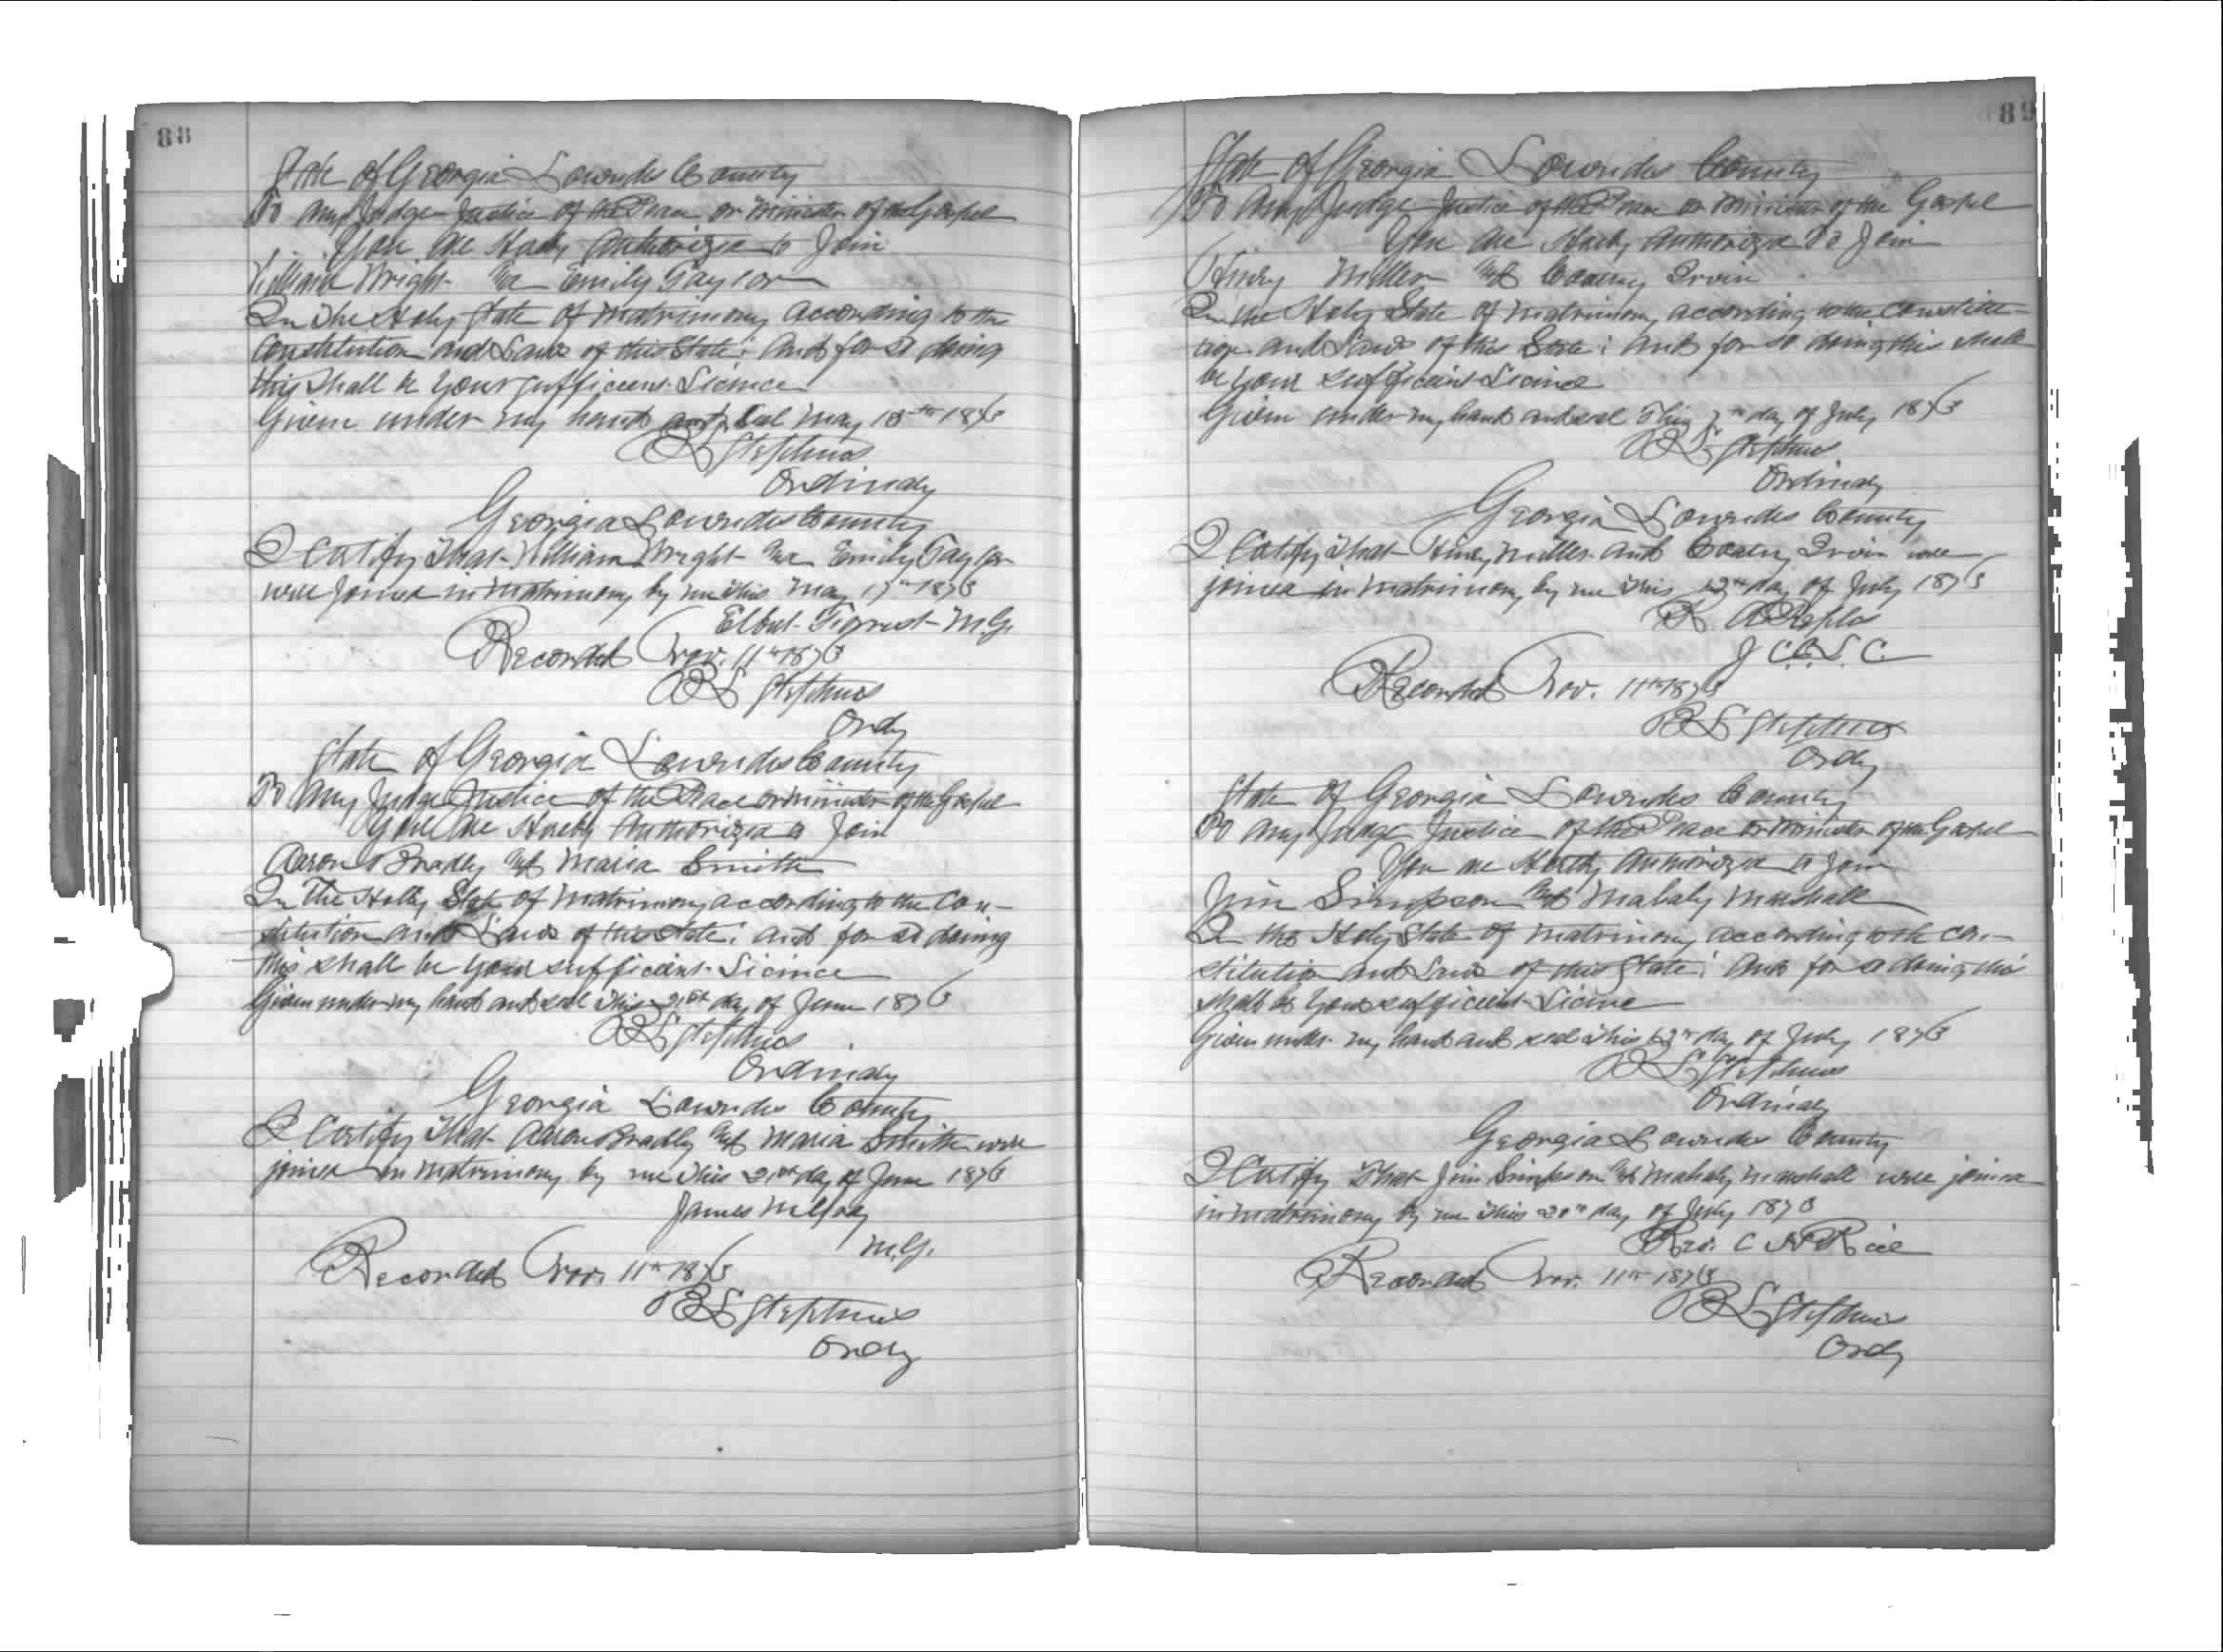 88
State of Georgia Lowndes County
To any Judge Justice of the Peace or Minister of the Gospel
You are Hereby Authorized to Join
William Wright and Emily Taylor
In The Holy State of Matrimony according to the
Constitution and Laws of this State; And for so doing
this shall be your sufficient Licince
Given under my hand and Seal May 18th 1876
Stephens
Ordinary
Georgia Lowndes County
I Certify That William Wright and Emily Taylor
were Joined in Matrimony by me this May 17th 1876
M.G.
Recorded Nov. 11th 1876
Stephens
Ordy
State of Georgia Lowndes County
To Any Judge Justice of the Peace or Minister of the Gospel
You are Hereby Authorized to Join
Aaron Bradly and Maria Smith
In The Holy State of Matrimony according to the Con-
stitution and Laws of this State; and for so doing
this shall be your sufficient Licince
Given under my hand and seal This 21st day of June 1876
Stephens
Ordinary
Georgia Lowndes County
I Certify That Aaron Bradly and Maria Smith were
joined in Matrimony by me This 21st day of June 1876
James
M.G.
Recorded Nov. 11th 1876
Stephens
Ordy
89
State of Georgia Lowndes County
To Any Judge Justice of the Peace or Minister of the Gospel
You are Hereby Authorized To Join
Henry Miller and Irvin
In the Holy State of Matrimony according to the Constitu-
tion and Laws of this State; And for so doing this shall
be your sufficient Licince
Given under my hand and seal This day of July 1876
Stephens
Ordinary
Georgia Lowndes County
I Certify That Henry Miller and Irvin were
joined in Matrimony by me This day of July 1876
Recorded Nov. 11th 1876
Stephens
Ordy
State of Georgia Lowndes County
To Any Judge Justice of the Peace or Minister of the Gospel
You are Hereby Authorized to Join
Jim Simpson and Mahaly Marshall
In the Holy State of Matrimony according to the Con-
stitution and Laws of this State; And for so doing this
shall be your sufficient Licince
Given under my hand and seal This day of July 1876
Stephens
Ordinary
Georgia Lowndes County
I Certify That Jim Simpson and Mahaly Marshall were joined
in Matrimony by me This 20th day of July 1876
Rev. C Rice
Recorded Nov. 11th 1876
Stephens
Ordy